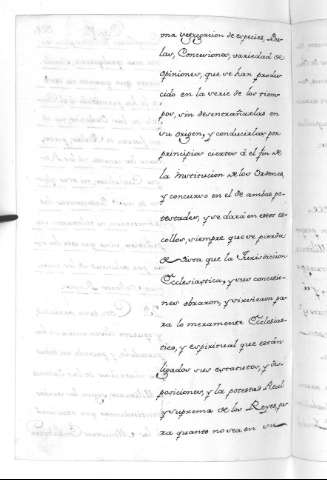 una reguracion de especies, Bu-
las, Concesiones, variedad de
opiniones, que se han produ-
cido en la serie de los tiem-
pos, sin desentrañarlas en
su origen, y conducirlas por
principios ciertos á el fin de
la Institucion de los Ordenes,
y concurso en el de ambas po-
testades, y se dará en estos es-
collos, siempre que se pierda
de vista que la Jurisdiccion
Ecclesiastica, y sus concesio-
nes obraron, y existieron pa-
ra lo meramente Ecclesias-
tico, y espiritual que están
ligados sus estatutos, y dis-
posiciones, y la potestad Real
y suprema de los Reyes, pa-
ra quanto no sea en su